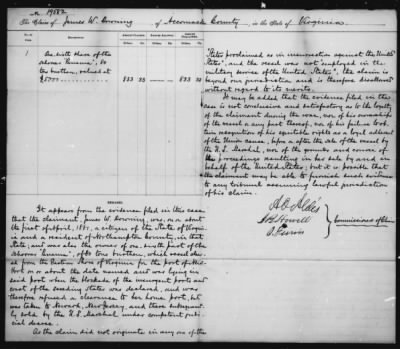 No. 19552
The Claim of James W. Downing of Accomack County, in the State of Virginia.
1
One sixth share of the
schooner
his brother, valued at
$5000
833 33
833 33
REMARKS.
It appears from the evidence filed in this case,
that the claimant, James W. Downing, was, on or about
the first of April, 1861, a citizen of the State of Virginia
and a resident of Northampton County, in that
State, and was also the owner of one-sixth part of the
schooner
from the Eastern Shore of Virginia for the port of New
York on or about the date named and was lying in
said port when the blockade of the insurgent ports and
coast of the seceding States was declared, and was
therefore refused a clearance to her home port, but
was taken to Newark, New Jersey, and there subsequent-
ly sold by the U.S. Marshal under competent judi-
cial decree.
As the claim did not originate in any one of the
States proclaimed as in insurrection against the United
States, and the vessel was not employed in the
military service of the United States, the claim is
beyond our jurisdiction and is therefore disallowed
without regard to its merits.
It may be added that the evidence filed in the
case is not conclusive and satisfactory as to the loyalty
of the claimant during the war, nor of his ownership
of the vessel or any part thereof, nor of his failure to ob-
tain recognition of his equitable rights as a loyal adherent
of the Union cause, upon or after the sale of the vessel by
the U.S. Marshal, nor of the grounds and course of
the proceedings resulting in his sale by and in
behalf of the United States; but it is possible that
the claimant may be able to furnish such evidence
to any tribunal assuming lawful jurisdiction
of his claim.
A. O. Aldis
J. B. Howell
O. Ferriss
Commissioners of Claims